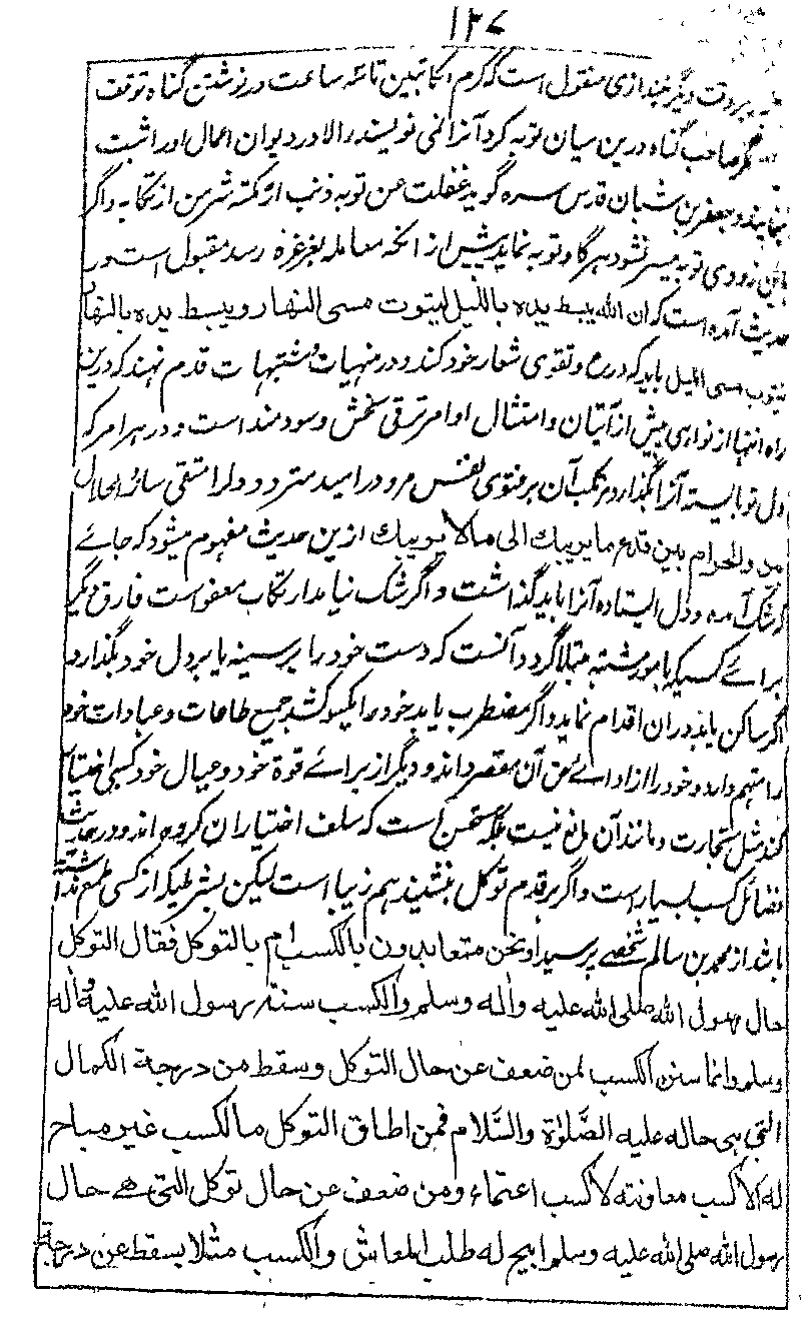 ۱۳۷
بروقت دیگر نیندازی منقول است که کرام الکاتبین تا سه ساعت در نوشتن گناه توقف
اگر صاحب گناه درین میان توبه کرد آنرا نمی نویسند والا در دیوان اعمال او را ثبت
نمایند و جعفر بن سنان قدس سره گوید غفلت عن توبه ذنب ارتکبته شر من ارتکابه و اگر
باین زودی توبه میسر نشود هرگاه توبه نماید پیش از انکه معامله بغرغره رسد مقبول است در
حدیث آمده است که ان الله یبسط یده باللیل لیتوب مسی النهار و یبسط یده بالنهار
لیتوب مسی اللیل باید که ورع و تقوی شعار خود کند و در منهیات و مشتبهات قدم نهند که درین
راه انتها از نواهی بیش از آتیان و امتثال اوامر ترقی بخش و سودمند است و در هر امر که
دل تو بایستد آنرا بگذار و مرتکب آن بر فتوی نفس مرو در امید مترد و دل را متقی ساز الحلال
بین والحرام بین فدع ما یریبک الی مالا یریبک ازین حدیث مفهوم میشود که جائے
که شک آمده و دل ایستاده آنرا باید گذاشت و اگر شک نیامد ارتکاب معفو است فارق دیگر
برائے کسیکه بامور مشتبه مبتلا گردد آنست که دست خود را بر سینه یا بر دل خود بگذارد
اگر ساکن یابد دران اقدام نماید و اگر مضطرب یابد خود را یکسو کشد جمیع طاعات و عبادات خود
را متهم دارد و خود را از ادائے حق آن مقصر داند و دیگر از برائے قوة خود و عیال خود کسبی اختیار
کند مثل تجارت و مانند آن مانع نیست بلکه مستحسن است که سلف اختیار ان کرده اند و در
فضائل کسب بسیار است و اگر بر قدم توکل بنشیند هم زیبا است لیکن بشرطیکه از کسی طمع نداشته
باشد از محمد بن سالم شخصے پرسید او نحن متعابدون بالکسب ام بالتوکل فقال التوکل
حال رسول الله صلی الله علیه واله وسلم والکسب سنة رسول الله علیه واله
وسلم وانما سن الکسب لمن ضعف عن حال التوکل وسقط من درجة الکمال
التی هی حاله علیه الصَّلوٰة والسَّلام فمن اطاق التوکل مالکسب غیر مباح
له الا کسب معاونته لا کسب اعتماد ومن ضعف عن حال توکل التی هے حال
رسول الله صلی الله علیه وسلم ابیح له طلب المعاش والکسب مثلا یسقط عن درجة